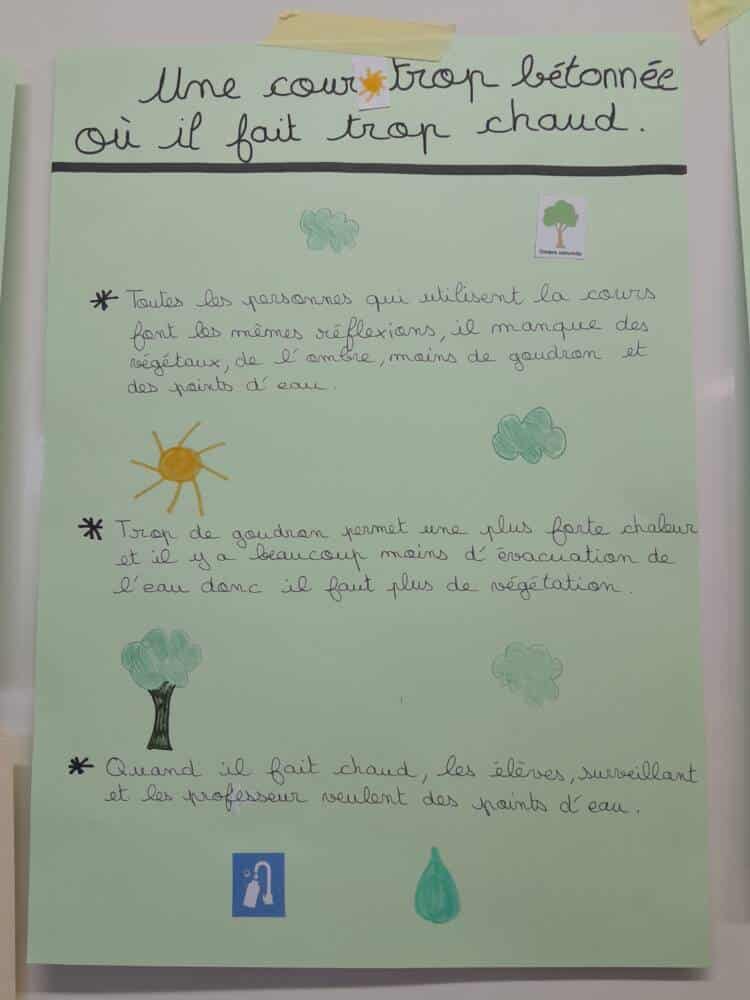 Une cour trop bétonnée
où il fait trop chaud.
* Toutes les personnes qui utilisent la cours
font les mêmes réflexions, il manque des
végétaux, de l'ombre, moins de goudron et
des points d'eau.
* Trop de goudron permet une plus forte chaleur
et il y a beaucoup moins d'évacuation de
l'eau donc il faut plus de végétation.
* Quand il fait chaud, les élèves, surveillant
et les professeur veulent des points d'eau.